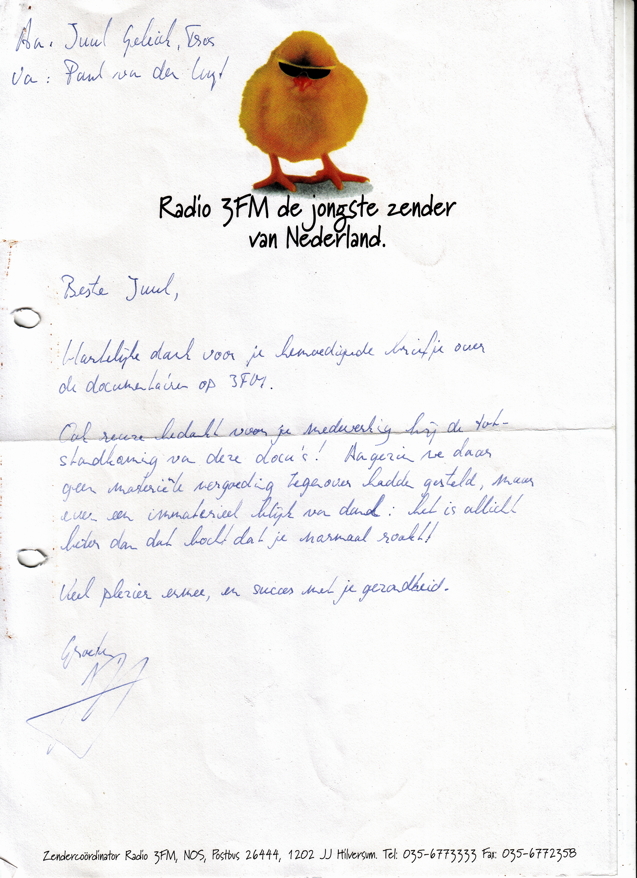 Aan: Juul Geleick, Tros
via: Paul van der Lugt
Radio 3FM de jongste zender
van Nederland.
Beste Juul,
Hartelijke dank voor je bemoedigende briefje over
de documentaires op 3FM.
Ook reuze bedankt voor je medewerking bij de tot-
standkoming van deze docu's! Aangezien we daar
geen materiële vergoeding tegenover hadden gesteld, maar
even een immaterieel blijk van dank: het is allicht
beter dan dat bocht dat je normaal rookt!
Veel plezier ermee, en succes met je gezondheid.
Groeten,
Zendercoördinator Radio 3FM, NOS, Postbus 26444, 1202 JJ Hilversum. Tel: 035-6773333 Fax: 035-6772358